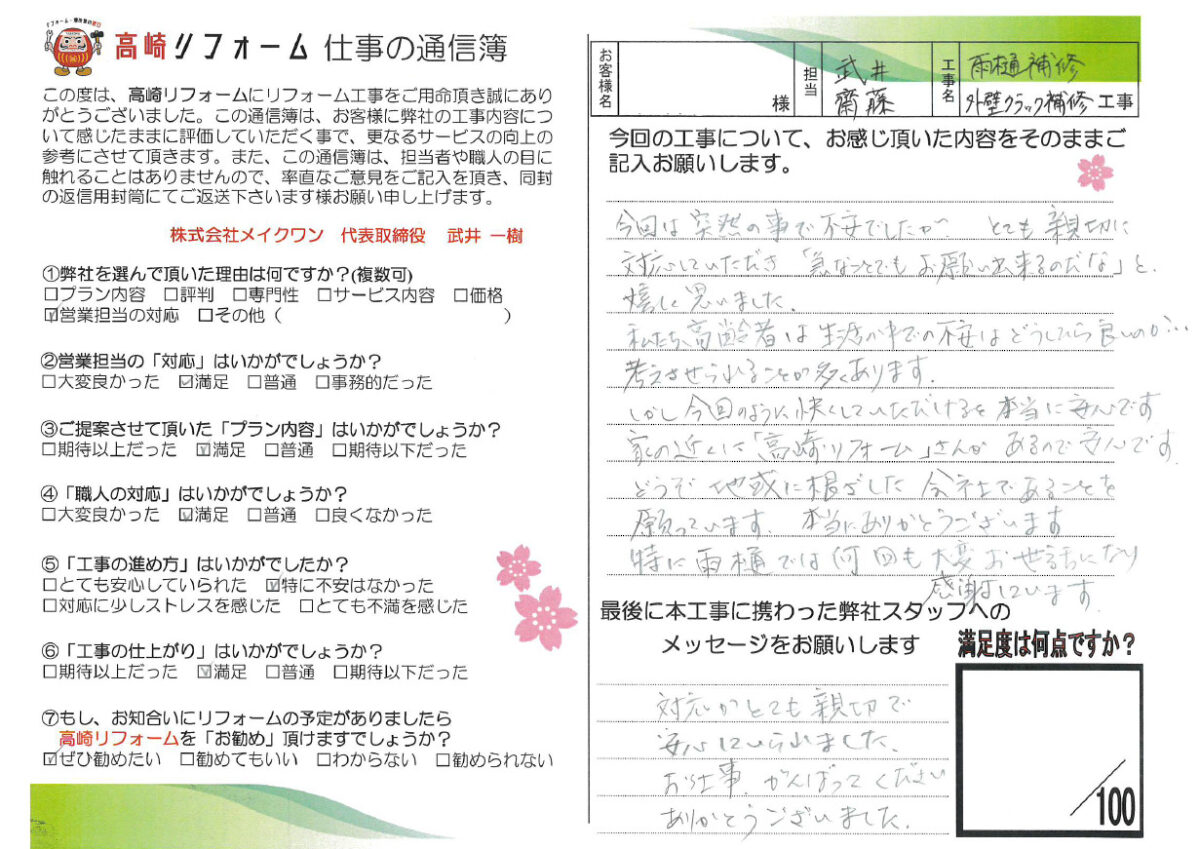 リフォーム・増改築の窓口
高崎リフォーム 仕事の通信簿
この度は、高崎リフォームにリフォーム工事をご用命頂き誠にあり
がとうございました。この通信簿は、お客様に弊社の工事内容につ
いて感じたままに評価していただく事で、更なるサービスの向上の
参考にさせて頂きます。また、この通信簿は、担当者や職人の目に
触れることはありませんので、率直なご意見をご記入を頂き、同封
の返信用封筒にてご返送下さいます様お願い申し上げます。
株式会社メイクワン 代表取締役 武井 一樹
①弊社を選んで頂いた理由は何ですか？(複数可)
□プラン内容 □評判 □専門性 □サービス内容 □価格
☑営業担当の対応 □その他（ ）
②営業担当の「対応」はいかがでしょうか？
□大変良かった ☑満足 □普通 □事務的だった
③ご提案させて頂いた「プラン内容」はいかがでしょうか？
□期待以上だった ☑満足 □普通 □期待以下だった
④「職人の対応」はいかがでしょうか？
□大変良かった ☑満足 □普通 □良くなかった
⑤「工事の進め方」はいかがでしたか？
□とても安心していられた ☑特に不安はなかった
□対応に少しストレスを感じた □とても不満を感じた
⑥「工事の仕上がり」はいかがでしょうか？
□期待以上だった ☑満足 □普通 □期待以下だった
⑦もし、お知合いにリフォームの予定がありましたら
高崎リフォームを「お勧め」頂けますでしょうか？
☑ぜひ勧めたい □勧めてもいい □わからない □勧められない
お客様名 様 担当 武井 齋藤 工事名 雨樋補修
外壁クラック補修 工事
今回の工事について、お感じ頂いた内容をそのままご
記入お願いします。
今回は突然の事で不安でしたが… とても親切に
対応していただき「急なことでもお願い出来るのだな」と、
嬉しく思いました。
私たち高齢者は生活の中での不安はどうしたら良いのか…
考えさせられることが多くあります。
しかし今回のように快くしていただけると本当に安心です
家の近くに「高崎リフォーム」さんが あるので安心です。
どうぞ 地域に根ざした 会社であることを
願っています。本当にありがとうございます
特に雨樋では何回も大変お世話になり
感謝しています。
最後に本工事に携わった弊社スタッフへの
メッセージをお願いします
対応がとても親切で
安心していられました。
お仕事、がんばってください
ありがとうございました。
満足度は何点ですか？
／100